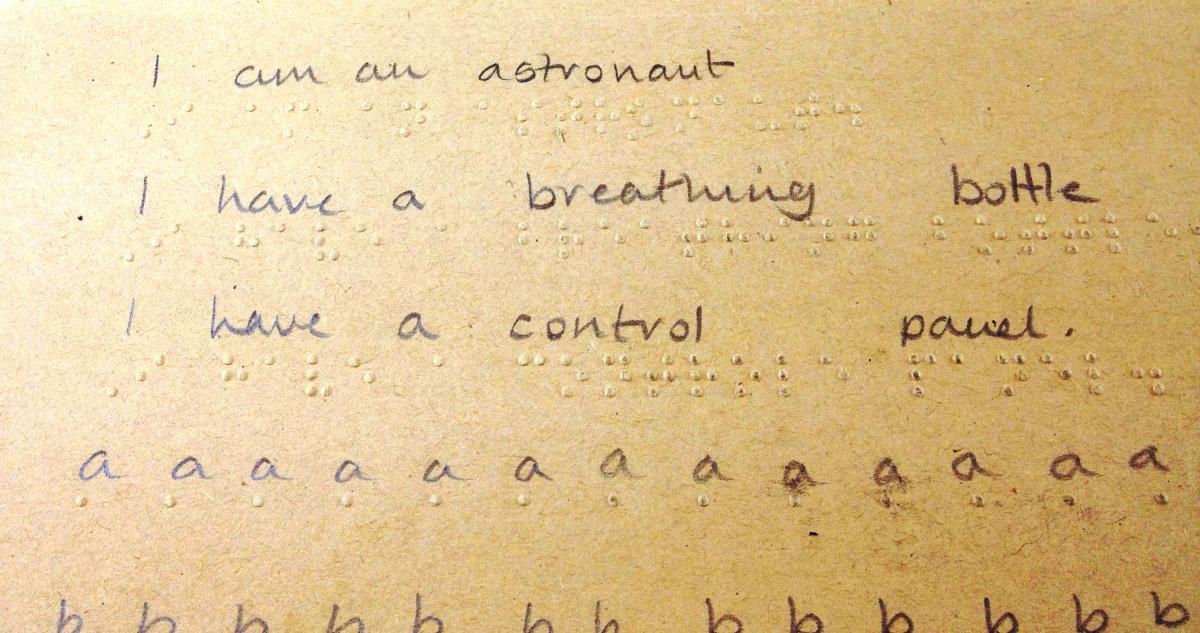 I am an astronaut
I have a breathing bottle
I have a control panel.
a a a a a a a a a a a a a
b b b b b b b b b b b b b